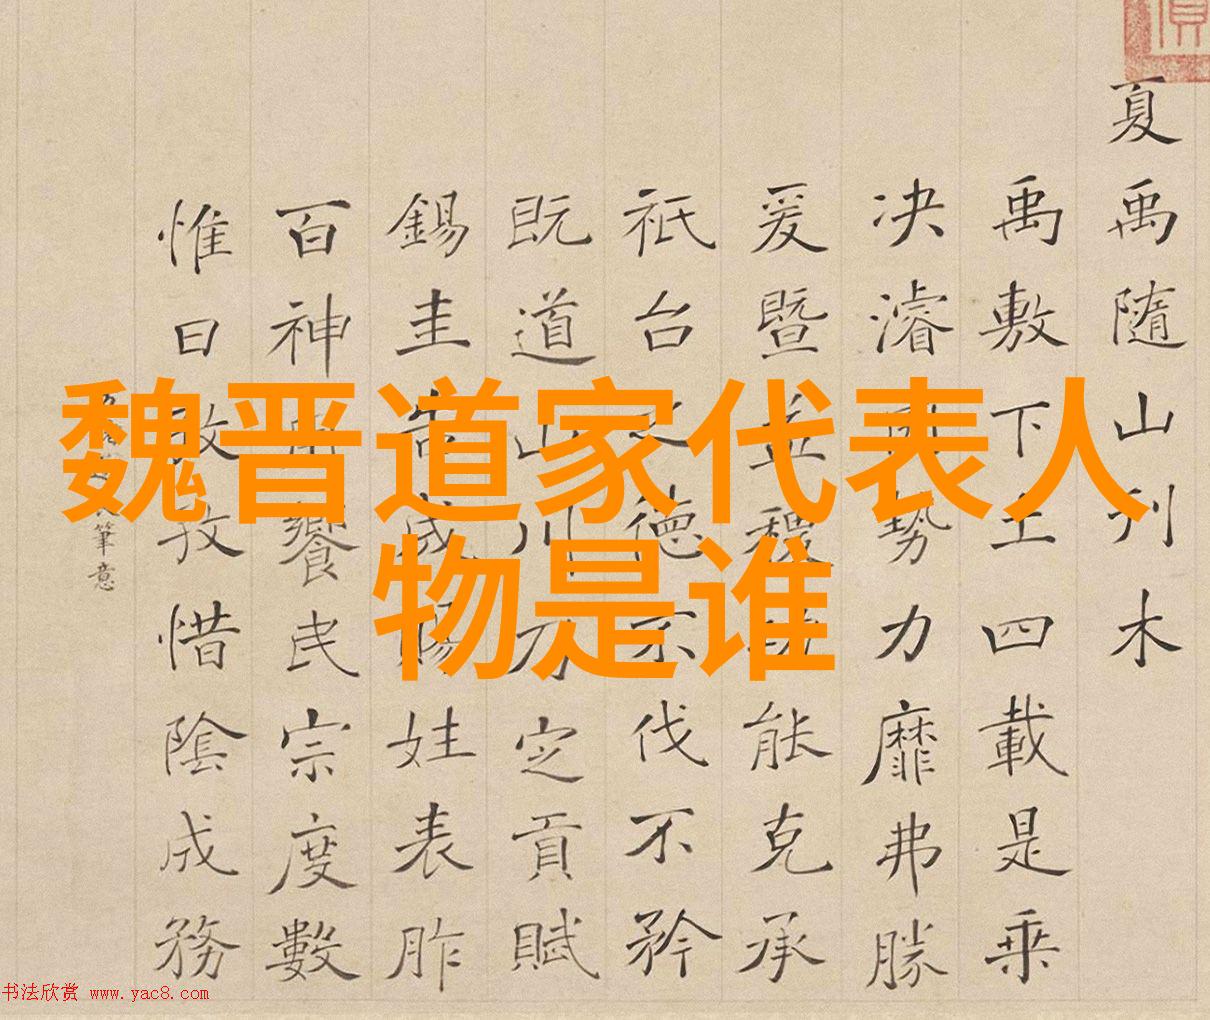 魏晋道家代表人
物是谁
夏禹隨山刊木
禹敷下土四載是乘
决濬勢力靡弗勝
爰暨益稷能克承
祇台德不伐不矜
既道山川乃定貢賦
錫圭告成賜姓表胙
百神饗民宗度數
惟日孜孜惜陰成務
筆意
书法欣赏 www.yac8.com